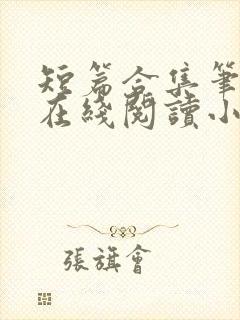 短篇合集筆
在綫閱讀小
張旗會